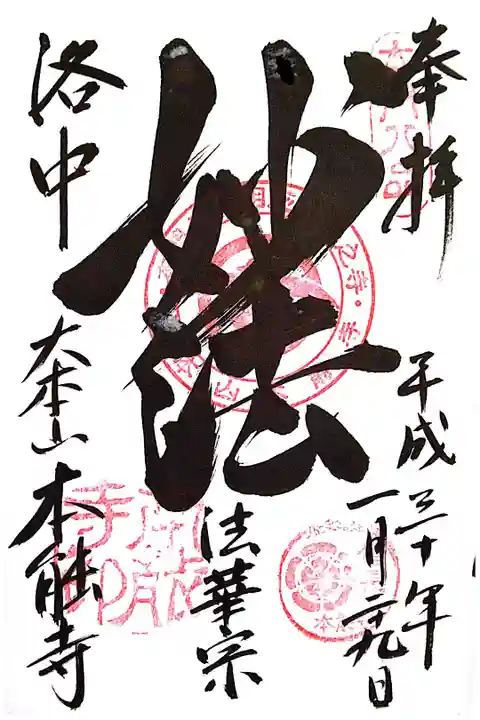 奉拝
平成三十年
一月二十九日
妙法
法華宗
洛中
大本山本能寺